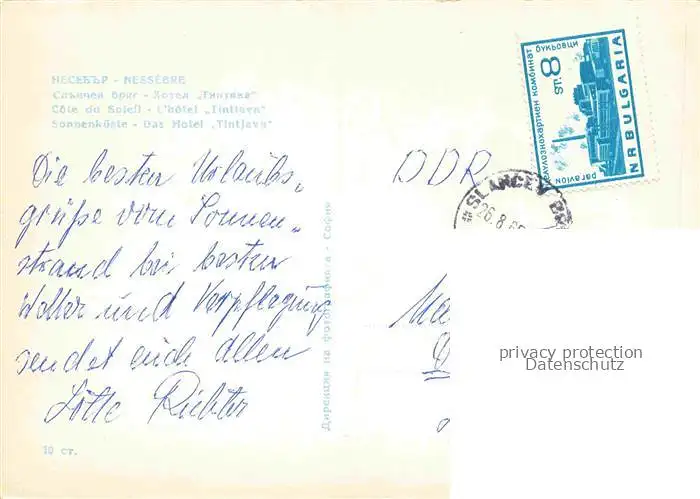 НЕСЕБЪР - NESSÈBRE
Слънчев бряг - Хотел „Тинтява"
Côte du Soleil - L'hôtel „Tintjava"
Sonnenküste - Das Hotel „Tintjava"
Die besten Urlaubs„
grüße vom Sonnen„
strand bei besten
Wetter und Verpflegung
sendet euch allen
Lotte Richter
10 ст.
Дирекция на фотографика - София
DDR
ЦЕЛУЛОЗНОХАРТИЕН КОМБИНАТ
БУКЬОВЦИ
8 ST.
paravion
N R BULGARIA
SLANCEV
26.8.
privacy protection
Datenschutz